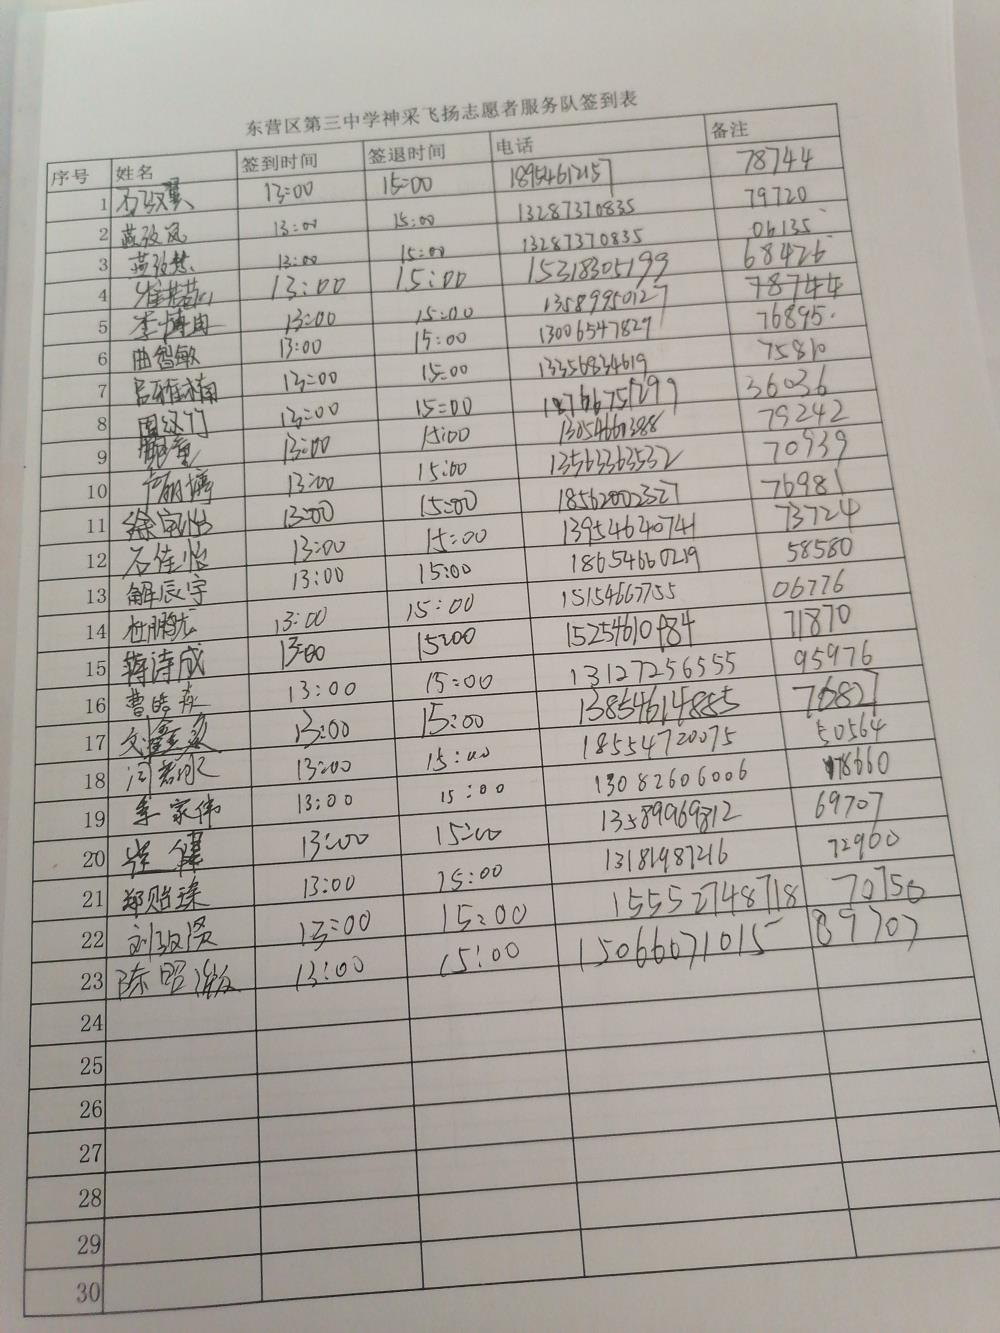 东营区第三中学神采飞扬志愿者服务队签到表
序号 姓名 签到时间 签退时间 电话 备注
1 石致翼 13:00 15:00 18954612157 78744
2 燕弛风 13:00 15:00 13287370835 79720
3 13:00 15:00 13287370835 06135
4 13:00 15:00 15318305199 68426
5 李博冉 13:00 15:00 13589950127 78744
6 曲智敏 13:00 15:00 13006547829 76895
7 13:00 15:00 13356834619 75810
8 13:00 15:00 36036
9 13:00 15:00 13054661388 79242
10 13:00 15:00 13563363532 70939
11 徐宇怡 13:00 15:00 18562002327 76981
12 石佳怡 13:00 15:00 13954640741 73724
13 解辰宇 13:00 15:00 18654660219 58580
14 杜鹏龙 13:00 15:00 15154667755 06776
15 蒋诗成 13:00 15:00 71870
16 曹皓森 13:00 15:00 13127256555 95976
17 13:00 15:00 13854614885 76827
18 闫君冰 13:00 15:00 18554720075 50564
19 李家伟 13:00 15:00 13082606006 78660
20 13:00 15:00 13589969812 69707
21 郑贻臻 13:00 15:00 13181987216 72900
22 刘政贤 13:00 15:00 15552748718 70750
23 陈昭潋 13:00 15:00 15066071015 89707
24
25
26
27
28
29
30